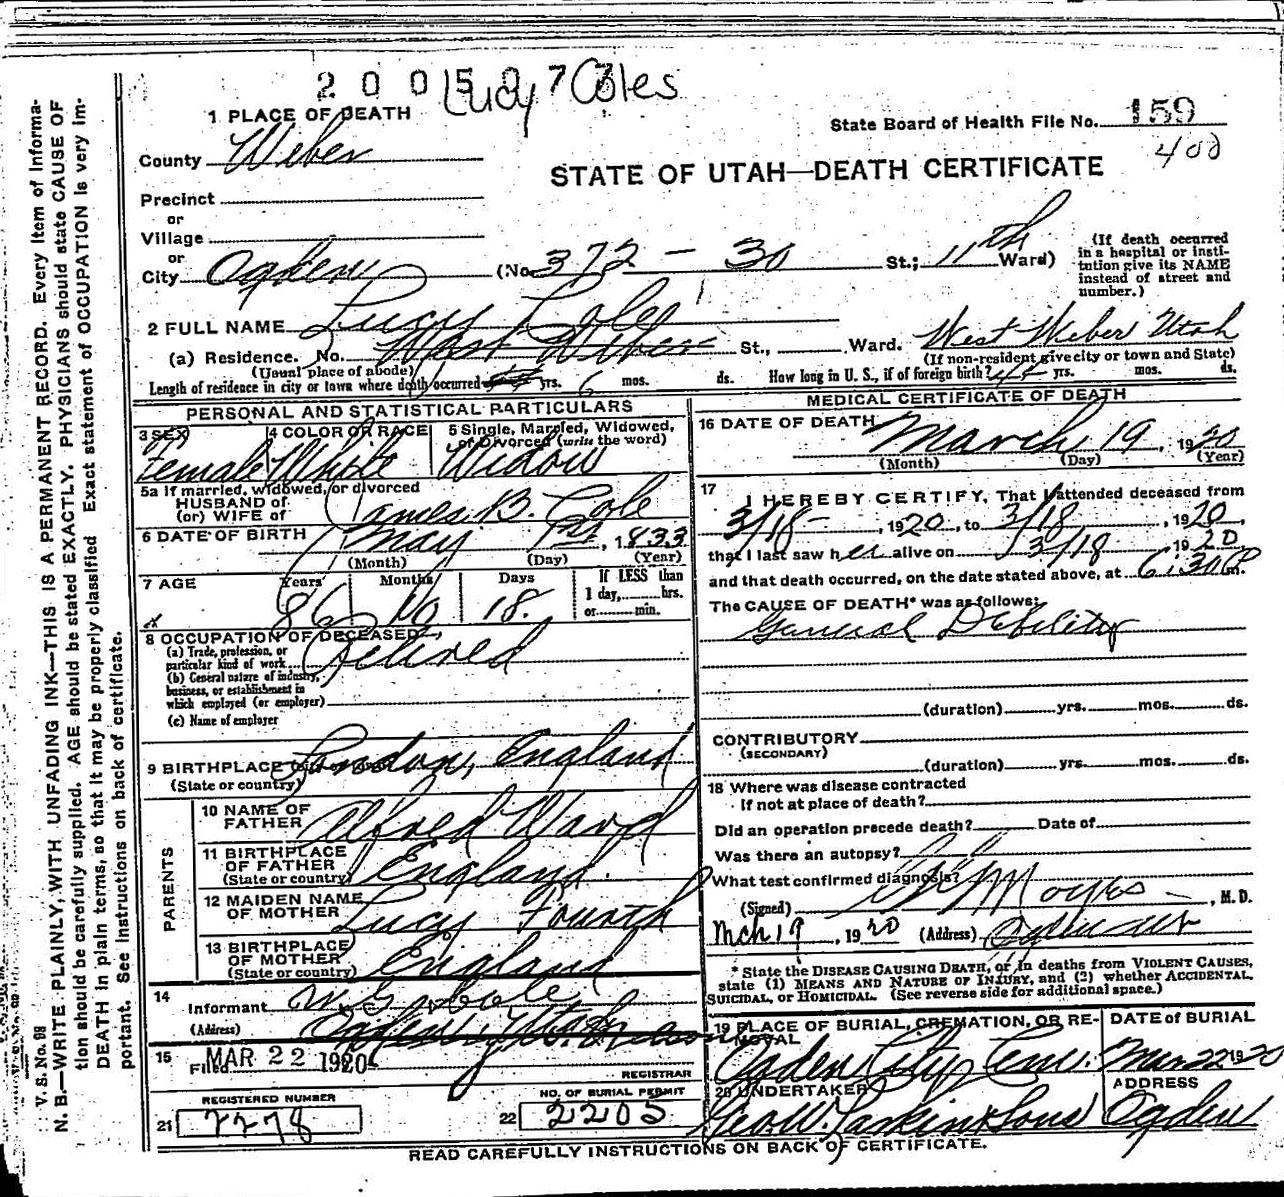 2005077
Lucy Coles
1 PLACE OF DEATH
State Board of Health File No. 159
400
County Weber
STATE OF UTAH—DEATH CERTIFICATE
Precinct
or
Village
or
City Ogden (No 372 - 30 St.; 11th Ward)
(If death occurred in a hospital or institution give its NAME instead of street and number.)
2 FULL NAME Lucy Cole
(a) Residence. No. West Weber St., Ward. West Weber Utah
(Usual place of abode) (If non-resident give city or town and State)
Length of residence in city or town where death occurred yrs. 6 mos. ds. How long in U. S., if of foreign birth? 44 yrs. mos. ds.
PERSONAL AND STATISTICAL PARTICULARS
3 SEX Female
4 COLOR OR RACE White
5 Single, Married, Widowed, or Divorced (write the word) Widow
5a If married, widowed, or divorced
HUSBAND of
(or) WIFE of James B. Cole
6 DATE OF BIRTH May 1st, 1833
(Month) (Day) (Year)
7 AGE Years 86 Months 10 Days 18.
If LESS than
1 day, hrs.
or min.
8 OCCUPATION OF DECEASED
(a) Trade, profession, or
particular kind of work Retired
(b) General nature of industry,
business, or establishment in
which employed (or employer)
(c) Name of employer
9 BIRTHPLACE London, England
(State or country)
PARENTS
10 NAME OF FATHER Alfred Ward
11 BIRTHPLACE OF FATHER England.
(State or country)
12 MAIDEN NAME OF MOTHER Lucy Fourth
13 BIRTHPLACE OF MOTHER England
(State or country)
14
Informant Cole
(Address) Ogden, Utah
15
Filed MAR 22 1920
REGISTRAR
REGISTERED NUMBER
21 2278
NO. OF BURIAL PERMIT
22 2205
MEDICAL CERTIFICATE OF DEATH
16 DATE OF DEATH March 19, 1920
(Month) (Day) (Year)
17
I HEREBY CERTIFY, That I attended deceased from
3/18-, 1920, to 3/18, 1920,
that I last saw her alive on 3/18 1920
and that death occurred, on the date stated above, at 6:30 P m.
The CAUSE OF DEATH* was as follows:
General Debility
(duration) yrs. mos. ds.
CONTRIBUTORY
(SECONDARY)
(duration) yrs. mos. ds.
18 Where was disease contracted
If not at place of death?
Did an operation precede death? Date of
Was there an autopsy?
What test confirmed diagnosis?
(Signed) Moyes, M. D.
Mch 19, 1920 (Address) Ogden Ut
* State the DISEASE CAUSING DEATH, or in deaths from VIOLENT CAUSES,
state (1) MEANS AND NATURE OF INJURY, and (2) whether ACCIDENTAL,
SUICIDAL, or HOMICIDAL. (See reverse side for additional space.)
19 PLACE OF BURIAL, CREMATION, OR REMOVAL
Ogden City Cem.
DATE of BURIAL
Mar 22 1920
20 UNDERTAKER
Geo. W. Larkin & Sons
ADDRESS
Ogden
READ CAREFULLY INSTRUCTIONS ON BACK OF CERTIFICATE.
V. S. No. 98
N. B.—WRITE PLAINLY, WITH UNFADING INK—THIS IS A PERMANENT RECORD. Every Item of Informa-
tion should be carefully supplied. AGE should be stated EXACTLY. PHYSICIANS should state CAUSE OF
DEATH in plain terms, so that it may be properly classified. Exact statement of OCCUPATION is very im-
portant. See Instructions on back of certificate.